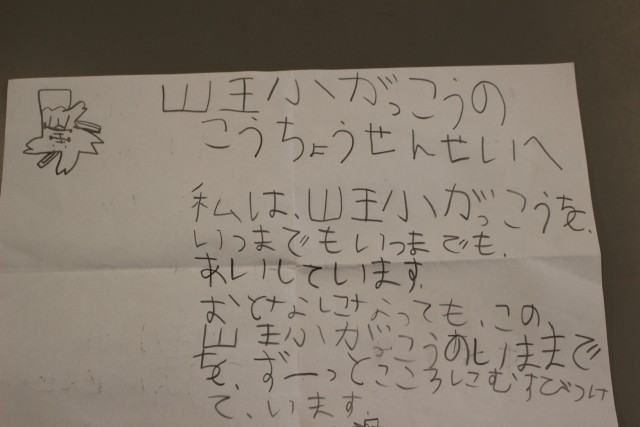 山王小がっこうの
こうちょうせんせいへ
私は、山王小がっこうを、
いつまでもいつまでも、
あいしています。
おとなになっても、この、
山王小がっこうあいままで
を、ずーっとこころにむすびつけ
て、います。